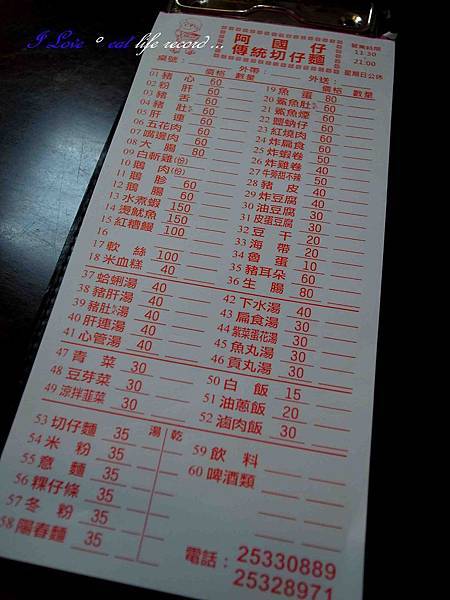 I Love ° eat life record ...
阿國仔
傳統切仔麵
營業時間
11:30
21:00
星期日公休
桌號: 外帶: 外送:
價格 數量
01 豬心 60
02 粉肝 60
03 豬舌 60
04 豬肚 80
05 肝連 60
06 五花肉 60
07 嘴邊肉 60
08 大腸 80
09 白斬雞(份)
10 鵝肉(份)
11 鵝胗 60
12 鵝腸 60
13 水煮蝦 150
14 燙魷魚 150
15 紅糟鰻 100
16
17 軟絲 100
18 米血糕 40
價格 數量
19 魚蛋 80
20 鯊魚肚
21 鯊魚煙
22 鹽蚋仔
23 紅燒肉
24 炸扁食
25 炸蝦卷 50
26 炸雞卷 40
27 牛蒡甜不辣 50
28 豬皮 40
29 炸豆腐 30
30 油豆腐 30
31 皮蛋豆腐
32 豆干 20
33 海帶 20
34 魯蛋 10
35 豬耳朵 60
36 生腸 80
37 蛤蜊湯 40
38 豬肝湯 40
39 豬肚湯 40
40 肝連湯 40
41 心管湯 40
42 下水湯 40
43 扁食湯 30
44 紫菜蛋花湯 30
45 魚丸湯 30
46 貢丸湯 30
47 青菜 30
48 豆芽菜 30
49 涼拌韮菜 30
50 白飯 15
51 油蔥飯 20
52 滷肉飯 30
湯 乾
53 切仔麵 35
54 米粉 35
55 意麵 35
56 粿仔條 35
57 冬粉 35
58 陽春麵 35
59 飲料
60 啤酒類
電話: 25330889
25328971